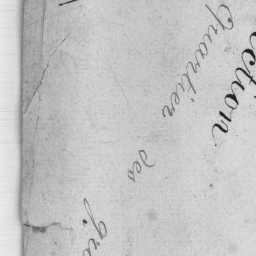 ction
Quartier
des
gra